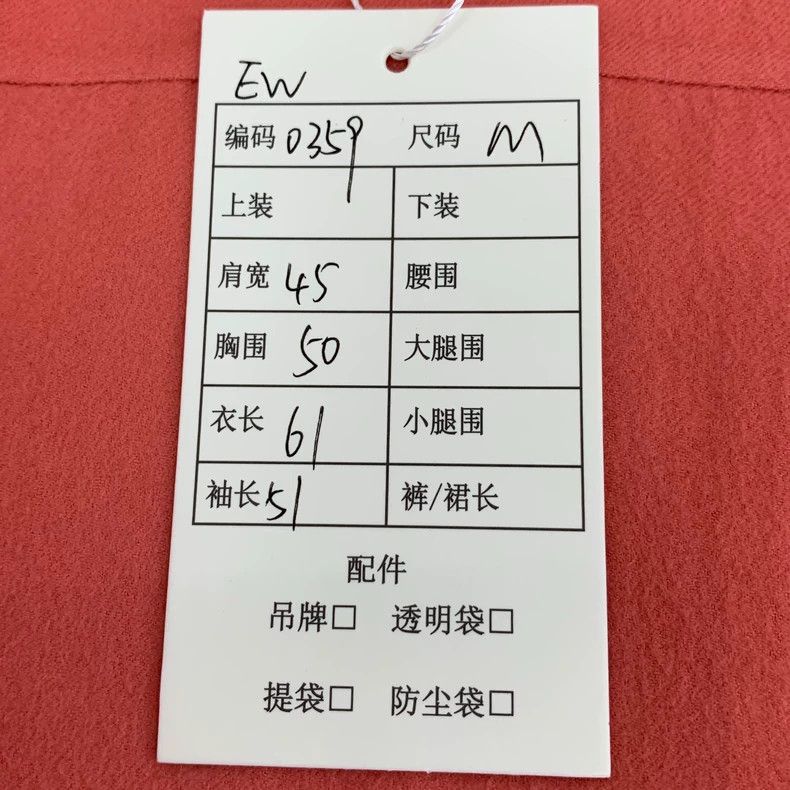 EW
编码 0359 尺码 M
上装 下装
肩宽 45 腰围
胸围 50 大腿围
衣长 61 小腿围
袖长 51 裤/裙长
配件
吊牌□ 透明袋□
提袋□ 防尘袋□